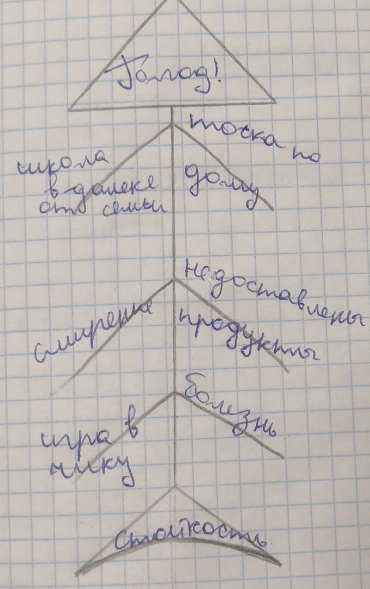 Голод!
школа
в далеке
от семьи
тоска по
дому
смирение
недоставлены
продукты
игра в
чику
болезнь
стойкость